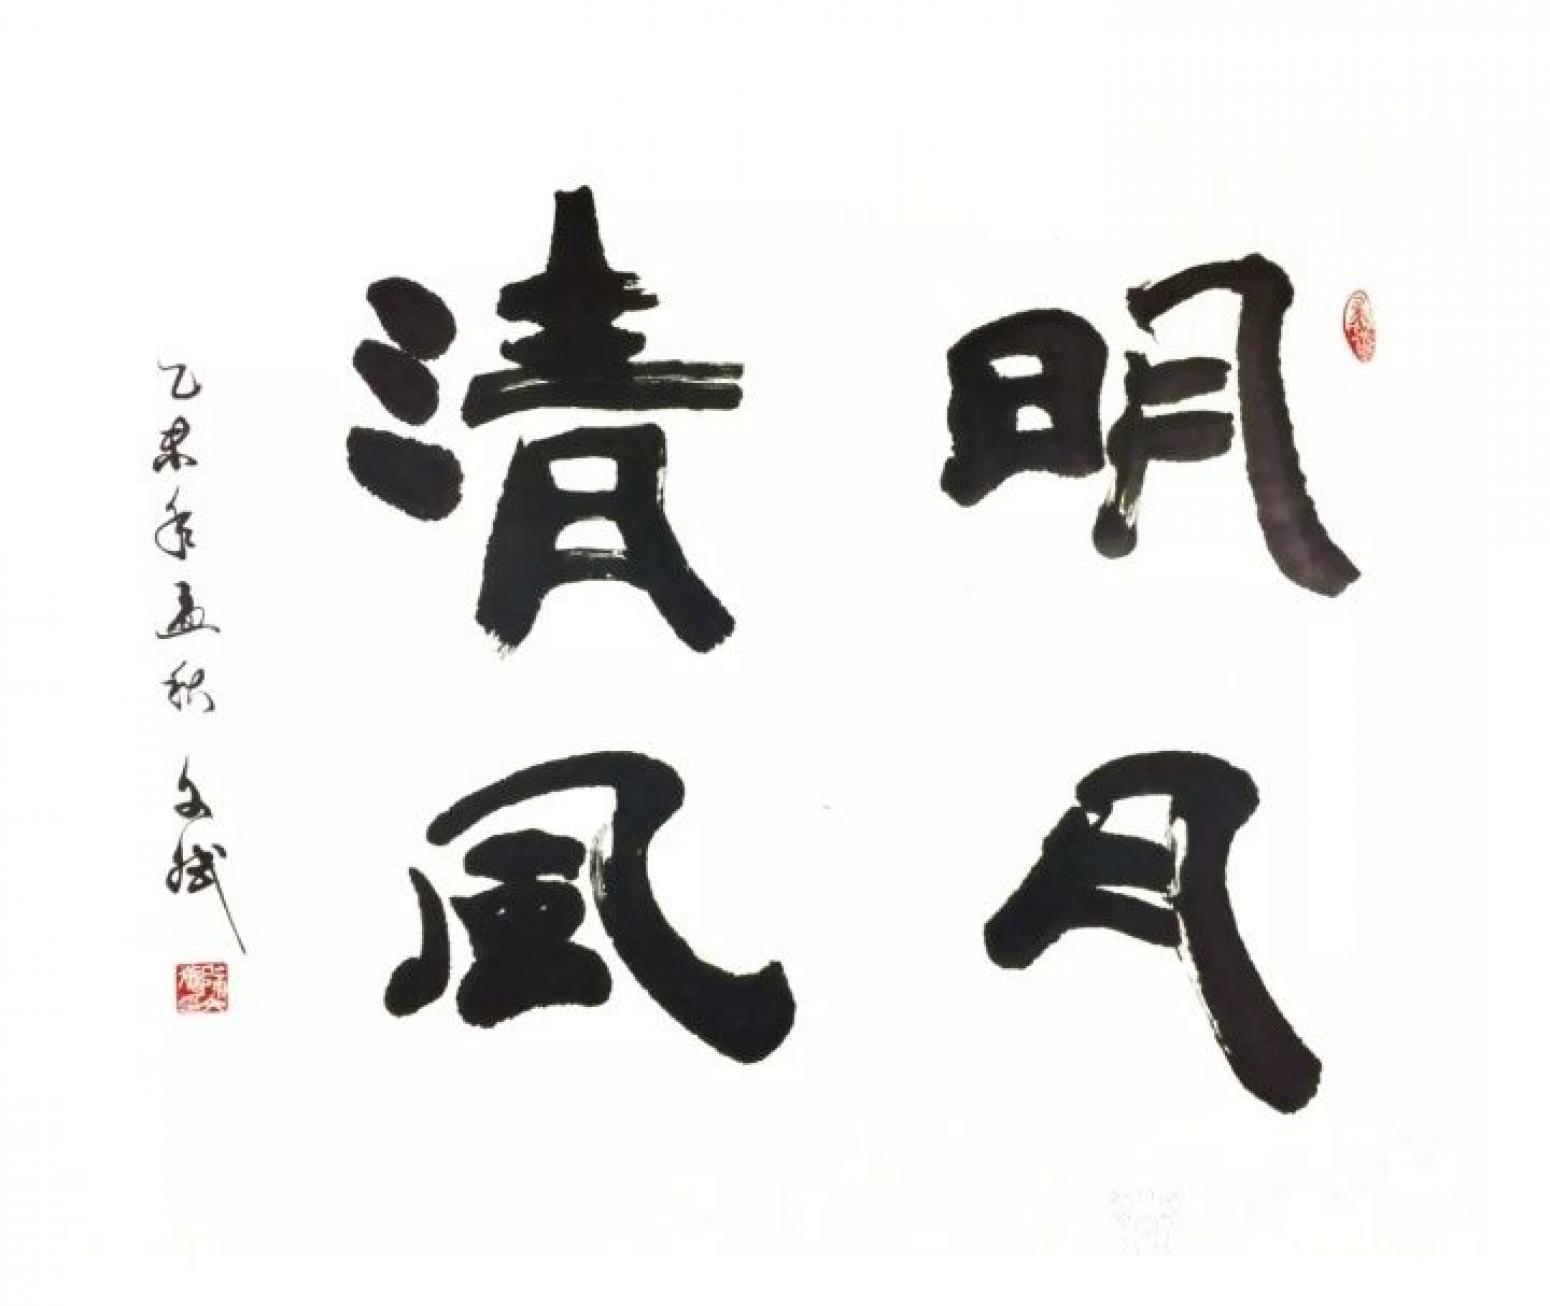 明月
清風
乙未年孟秋 文斌